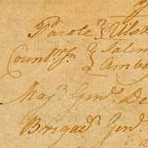 Parole } Ulst
Counts. Sn { Salem
& Ambo
Maj. Genl. De
Brigad. Genl.